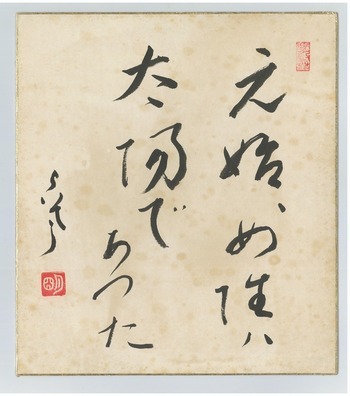 元始、女性ハ
太陽であつた
らいてう